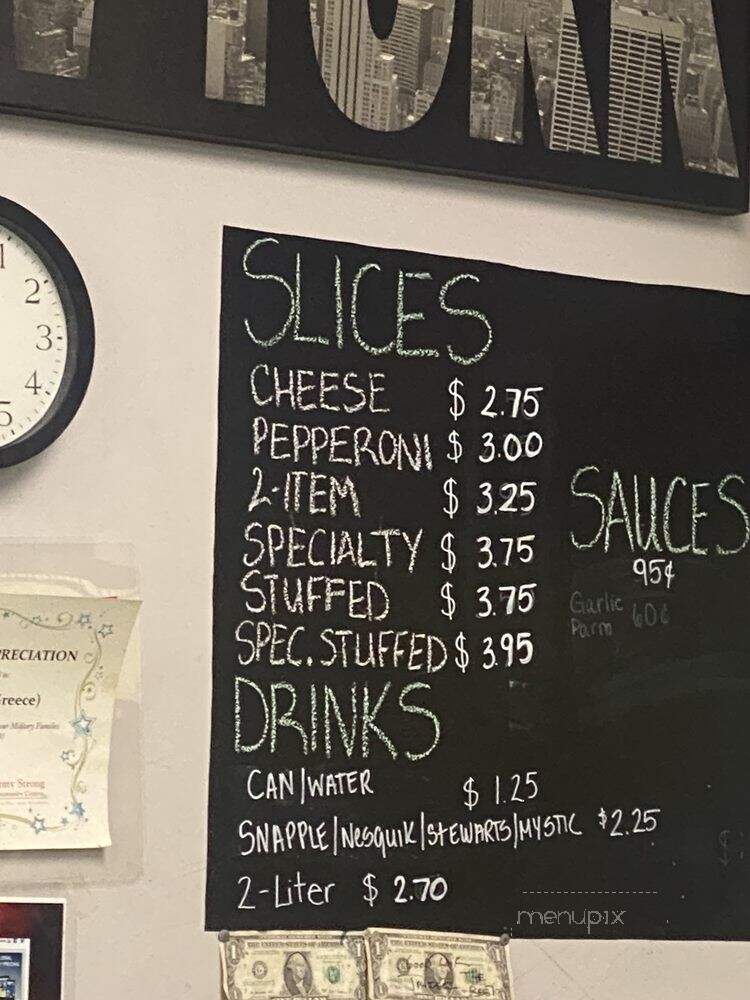 YORK
1
2
3
4
5
SLICES
CHEESE $ 2.75
PEPPERONI $ 3.00
2-ITEM $ 3.25
SPECIALTY $ 3.75
STUFFED $ 3.75
SPEC. STUFFED $ 3.95
SAUCES
95¢
Garlic Parm 60¢
DRINKS
CAN/WATER $ 1.25
SNAPPLE/NesquiK/STEWARTS/MYSTIC $2.25
2-Liter $ 2.70
PRECIATION
reece)
our Military Families
my Strong
menupix
THE UNITED STATES OF AMERICA